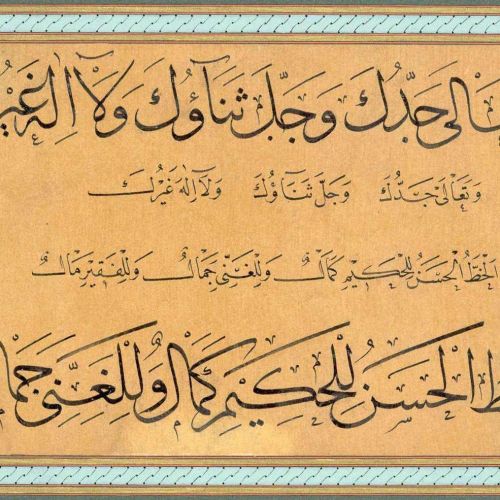 تَعَالَى جَدُّكَ وَجَلَّ ثَنَاؤُكَ وَلَآ اِلٰهَ غَيْرُ
وَتَعَالَى جَدُّكَ وَجَلَّ ثَنَاؤُكَ وَلَآ اِلٰهَ غَيْرُكَ
الْخَطُّ الْحَسَنُ لِلْحَكِيْمِ كَمَالٌ وَلِلْغَنِّى جَمَالٌ وَلِلْفَقِيْرِ مَالٌ
الْحَسَنُ لِلْحَكِيْمِ كَمَالٌ وَلِلْغَنِّى جَمَا